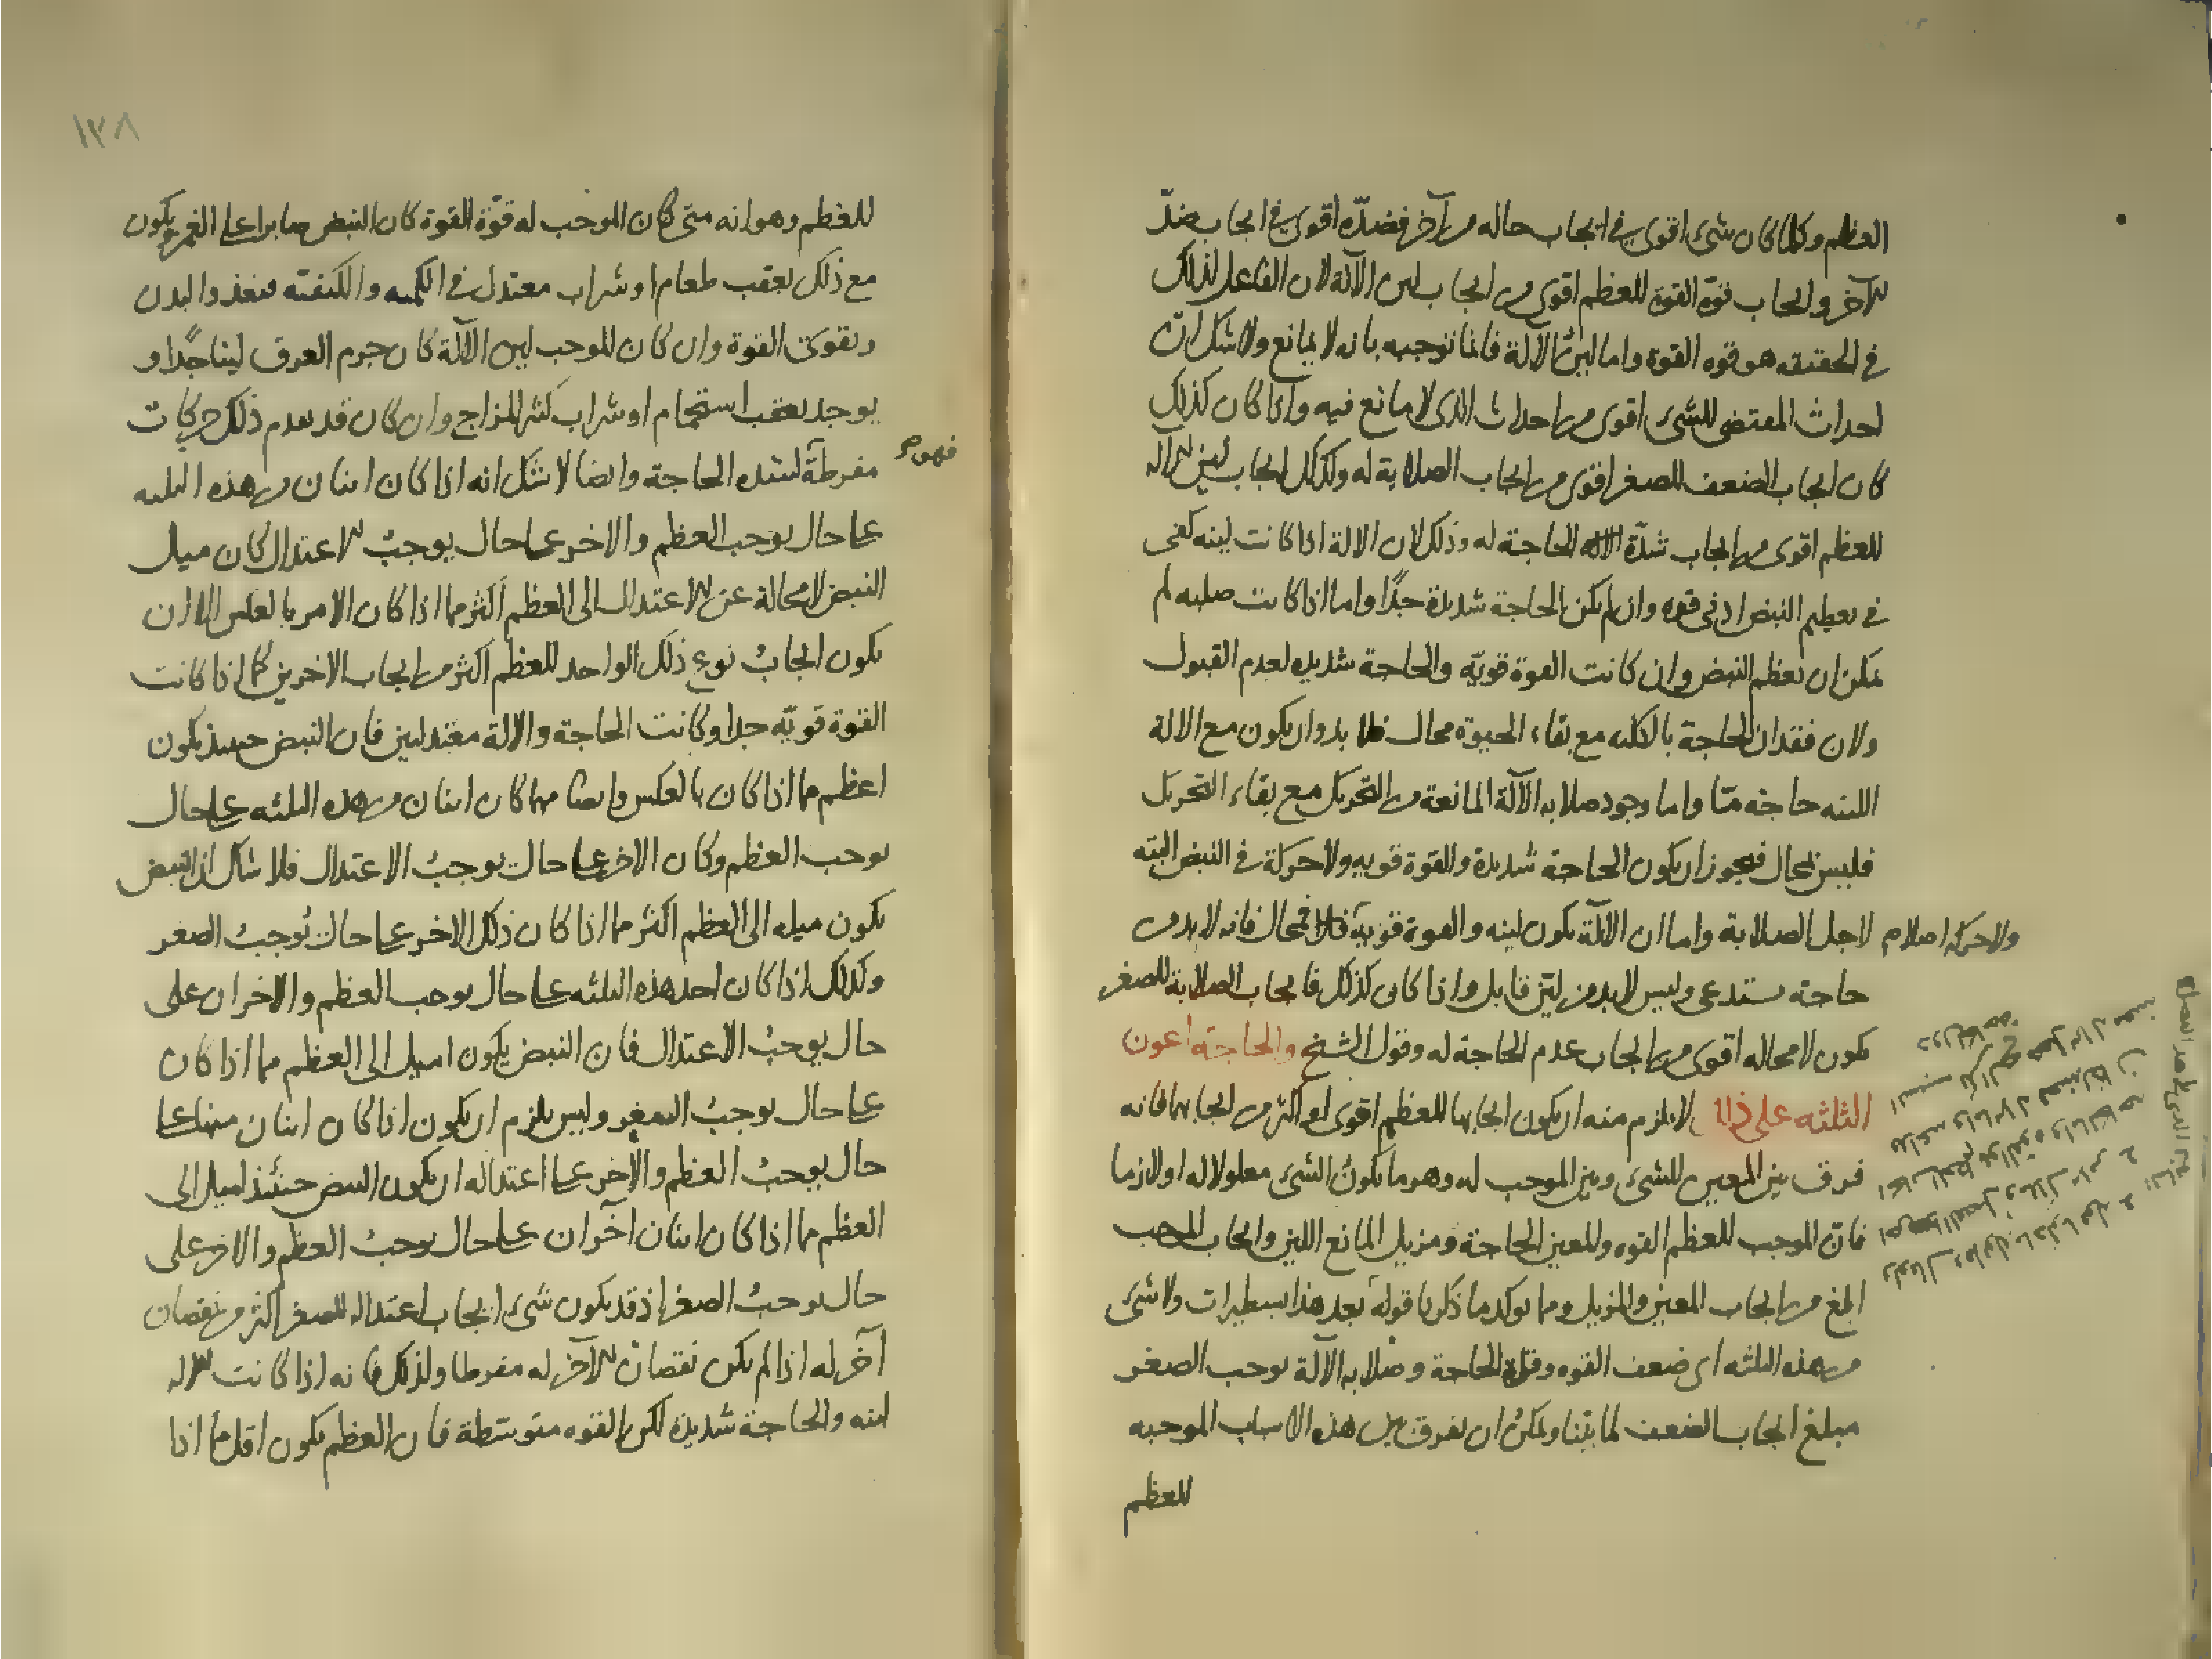 العظم وكلما كان شئ اقوى في ايجاب حاله من آخر فضدّه اقوى في ايجاب ضدّ
الآخر وايجاب قوّة القوة للعظم اقوى من ايجاب لين الآلة لان الفاعل لذلك
في الحقيقه هو قوه القوة واما لين الآلة فانما توجبه بانه لا يمانع ولا شك انّ
احداث المقتضى للشئ اقوى من احداث الذى لا مانع فيه واذا كان كذلك
كان ايجاب الضعف للصغر اقوى من ايجاب الصلابة له وكذلك ايجاب لين الآله
للعظم اقوى من ايجاب شدّة الحاجة له وذلك لان الالة اذا كانت لينه كفى
في تعظيم النبض ادنى قوه وان لم يكن الحاجة شديدة جدًا واما اذا كانت صلبه لم
يمكن ان تعظم النبض وان كانت القوة قويّه والحاجة شديده لعدم القبول
ولان فقدان الحاجة بالكليه مع بقاء الحيوة محال فلا بد وان يكون مع الالة
اللينه حاجه مّا واما وجود صلابه الآلة المانعة من التحريك مع بقاء التحريك
فليس بمحال فيجوز ان يكون الحاجة شديدة والقوة قويه ولا حركة في النبض البته
لاجل الصلابة واما ان الآلة يكون لينه والقوة قويّه فلا فمحال فانه لا بد من
ولا حركه اصلا م
حاجة تستدعى وليس لا بد من لين قابل واذا كان كذلك فايجاب الصلابة للصغر
يكون لا محاله اقوى من ايجاب عدم الحاجة له وقول الشيخ والحاجة اعون
الثلثه على ذلك لا يلزم منه ان يكون ايجابها للعظم اقوى او اكثر من ايجابهما فانه
فرق بين المعين للشئ وبين الموجب له وهو ما يكون الشئ معلولا له او لازما
فانّ الموجب للعظم القوه والمعين الحاجة ومزيل المانع اللين وايجاب الموجب
ابلغ من ايجاب المعين والمزيل ومما يوكد ما ذكرنا قوله بعد هذا بسطيرات ولا شئ
من هذه الثلثه اى ضعف القوه وقلة الحاجة وصلابه الآلة يوجب الصغر
مبلغ ايجاب الضعف لما بيّنا ويمكن ان نفرق بين هذه الاسباب الموجبه
للعظم
١٣٨
للعظم وهو انه متى كان الموجب له قوّة القوة كان النبض صابرا على الغمز ويكون
مع ذلك بعقب طعام او شراب معتدل في الكميه والكيفيّه فيغذو البدن
ويقوى القوة وان كان الموجب لين الآلة كان جرم العرق لينا جدًا و
يوجد بعقب استحمام او شراب كثير المزاج وان كان قد تقدم ذلك حركات
مفرطة لشده الحاجة وايضا لا شك انه اذا كان اثنان من هذه الثلثه
على حال يوجب العظم والاخر على حال يوجبُ الاعتدال كان ميل
النبض لا محالة عن الاعتدال الى العظم اكثر مما اذا كان الامر بالعكس الا ان
يكون ايجابُ نوع ذلك الواحد للعظم اكثر من ايجاب الاخرين كما اذا كانت
القوة قويّه جدا وكانت الحاجة والالة معتدلين فان النبض حينئذ يكون
اعظم مما اذا كان بالعكس وايضا مهما كان اثنان من هذه الثلثه على حال
يوجب العظم وكان الاخر على حال يوجبُ الاعتدال فلا شك ان النبض
يكون ميله الى العظم اكثر مما اذا كان ذلك الاخر على حال يوجبُ الصغر
وكذلك اذا كان احد هذه الثلثه على حال يوجب العظم والاخران على
حال يوجبُ الاعتدال فان النبض يكون اميل الى العظم مما اذا كان
على حال يوجبُ الصغر وليس يلزم ان يكون اذا كان اثنان منها على
حال يوجبُ العظم والآخر على اعتداله ان يكون النبض حينئذ اميل الى
العظم مما اذا كان اثنان آخران على حال يوجبُ العظم والاخر على
حال يوجبُ الصغر اذ قد يكون شئ ايجاب اعتداله للصغر اكثر من نقصان
آخر له اذا لم يكن نقصان الآخر له مفرطا ولذلك فانه اذا كانت الآله
لينه والحاجة شديدة لكن القوه متوسّطة فان العظم يكون اقل مما اذا